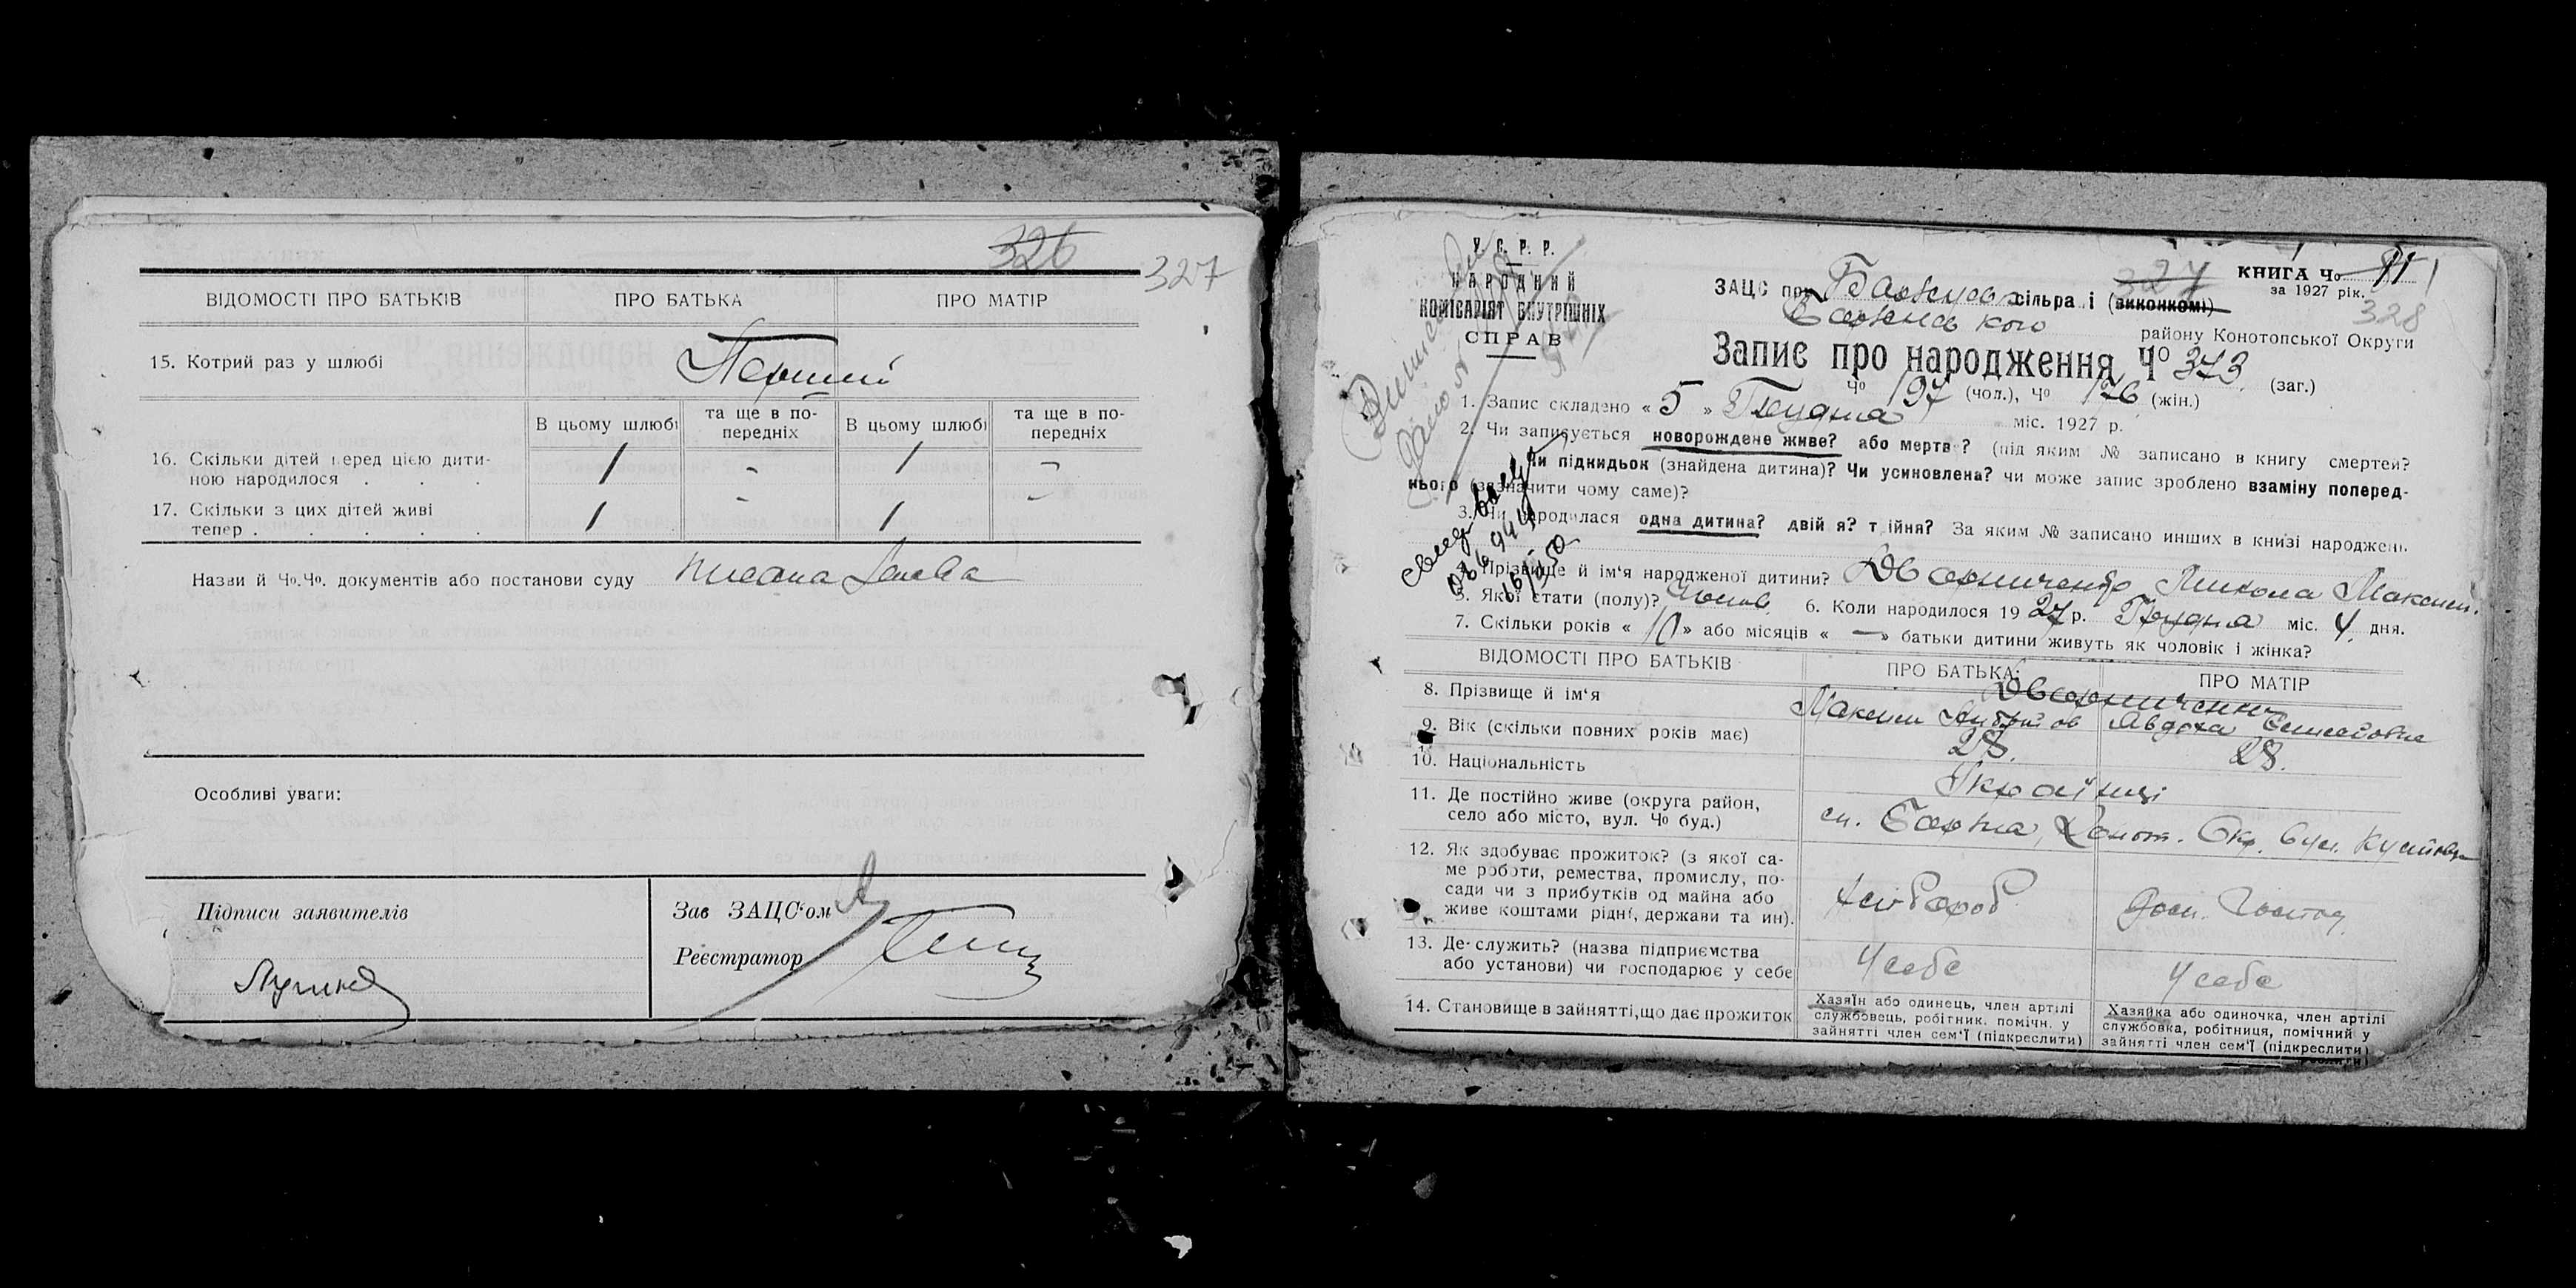 326
327
ВІДОМОСТІ ПРО БАТЬКІВ ПРО БАТЬКА ПРО МАТІР
15. Котрий раз у шлюбі Перший
В цьому шлюбі та ще в по-передніх В цьому шлюбі та ще в по-передніх
16. Скільки дітей перед цією дити-
ною народилося . . . 1 - 1 -
17. Скільки з цих дітей живі
тепер . . . . . 1 - 1 -
Назви й Чо.Чо. документів або постанови суду
Особливі уваги:
Підписи заявителів
Зав ЗАЦС'ом
Реєстратор
У. С. Р. Р.
НАРОДНИЙ
КОМІСАРІЯТ ВНУТРІШНІХ
СПРАВ
327
КНИГА Чо II
за 1927 рік.
328
ЗАЦС при сільра і (виконкомі)
району Конотопської Округи
Запис про народження Чо 373 (заг.)
Чо 197 (чол.), Чо 176 (жін.)
1. Запис складено « 5 » Грудня міс. 1927 р.
2. Чи записується новорождене живе? або мертве? (під яким № записано в книгу смертей?
Чи підкидьок (знайдена дитина)? Чи усиновлена? чи може запис зроблено взаміну поперед-
нього (зазначити чому саме)?
3. Чи народилася одна дитина? двійня? трійня? За яким № записано инших в книзі народжень
4. Прізвище й ім'я народженої дитини? Дворниченко Микола Максим.
5. Якої стати (полу)? Чолов. 6. Коли народилося 1927 р. Грудня міс. 4 дня.
7. Скільки років « 10 » або місяців « — » батьки дитини живуть як чоловік і жінка?
ВІДОМОСТІ ПРО БАТЬКІВ ПРО БАТЬКА: ПРО МАТІР
8. Прізвище й ім'я Дворниченки
Максим Явдоха
9. Вік (скільки повних років має) 28. 28.
10. Національність Українці
11. Де постійно живе (округа район,
село або місто, вул. Чо буд.) Конот. Окр. вул.
12. Як здобуває прожиток? (з якої са-
ме роботи, ремества, промислу, по-
сади чи з прибутків од майна або
живе коштами рідні, держави та ин). хлібороб дом. господ.
13. Де служить? (назва підприємства
або установи) чи господарює у себе У себе У себе
14. Становище в зайнятті, що дає прожиток
Хазяїн або одинець, член артілі
службовець, робітник. помічн. у
зайнятті член сем'ї (підкреслити)
Хазяйка або одиночка, член артілі
службовка, робітниця, помічний у
зайнятті член сем'ї (підкреслити)